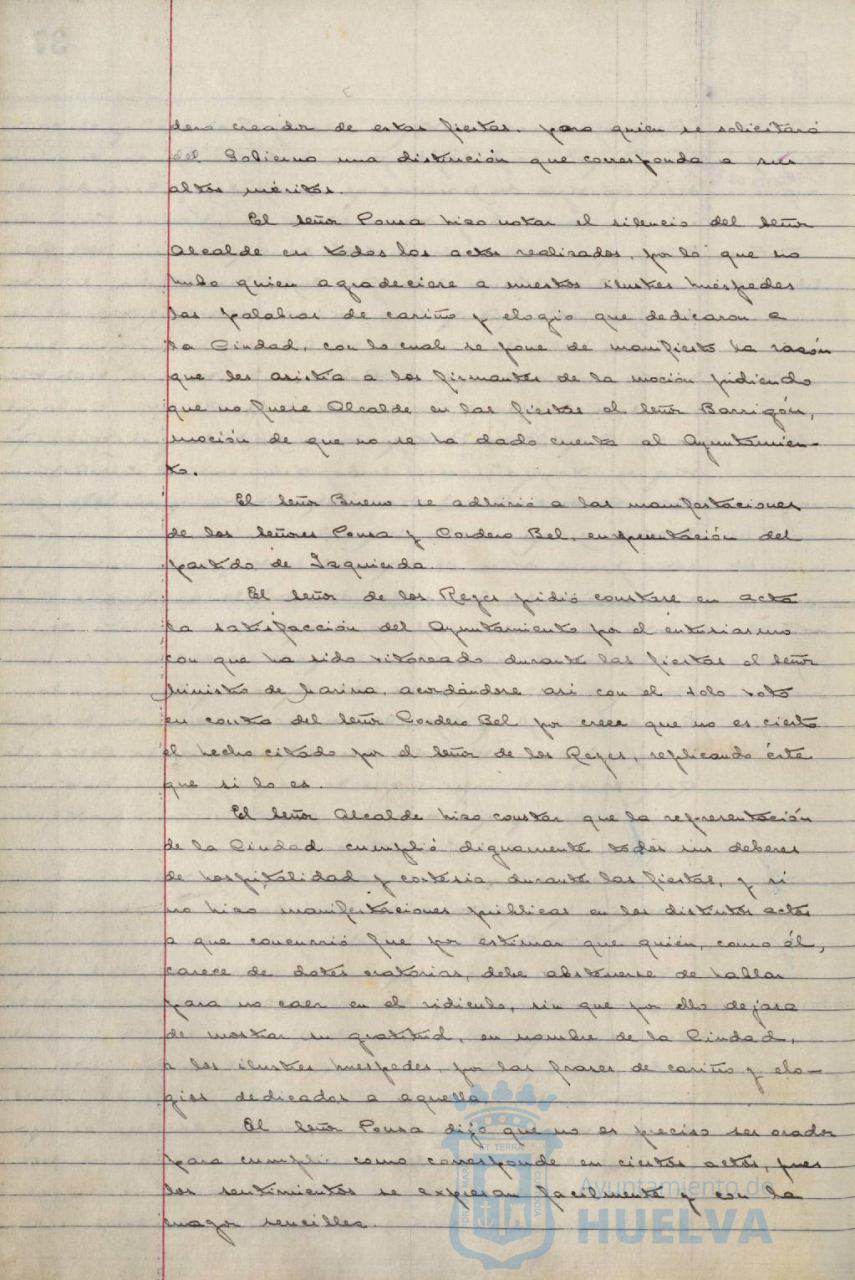 dero creador de estas fiestas, para quien se solicitará
del Gobierno una distinción que corresponda a sus
altos méritos.
El señor Ponsa hizo notar el silencio del señor
Alcalde en todos los actos realizados, por lo que no
hubo quien agradeciere a nuestros ilustres huéspedes
las palabras de cariño y elogio que dedicaron a
la Ciudad, con lo cual se pone de manifiesto la razón
que les asistía a los firmantes de la moción pidiendo
que no fuese Alcalde en las fiestas el señor Barrigón,
moción de que no se ha dado cuenta al Ayuntamien-
to.
El señor Bueno se adhirió a las manifestaciones
de los señores Ponsa y Cordero Bel, en representación del
partido de Izquierda.
El señor de los Reyes pidió constase en acta
la satisfacción del Ayuntamiento por el entusiasmo
con que ha sido vitoreado durante las fiestas el señor
Ministro de Marina, acordándose así con el solo voto
en contra del señor Cordero Bel por creer que no es cierto
el hecho citado por el señor de los Reyes, replicando éste
que si lo es.
El señor Alcalde hizo constar que la representación
de la Ciudad cumplió dignamente todos sus deberes
de hospitalidad y cortesía durante las fiestas, y si
no hizo manifestaciones públicas en los distintos actos
a que concurrió fue por estimar que quién, como él,
carece de dotes oratorias, debe abstenerse de hablar
para no caer en el ridículo, sin que por ello dejara
de mostrar su gratitud, en nombre de la Ciudad,
a los ilustres huéspedes, por las frases de cariño y elo-
gios dedicados a aquella.
El señor Ponsa dijo que no es preciso ser orador
para cumplir como corresponde en ciertos actos, pues
los sentimientos se expresan facilmente y con la
mayor sencillez.
Ayuntamiento de
HUELVA